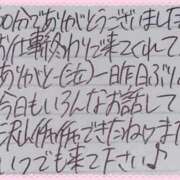 00分でありがとうございました
お仕事終わりで来てくれて
ありがと一(泣)一昨日ぶり
今日もいろんなお話して
できた
いつでも来て下さい♪